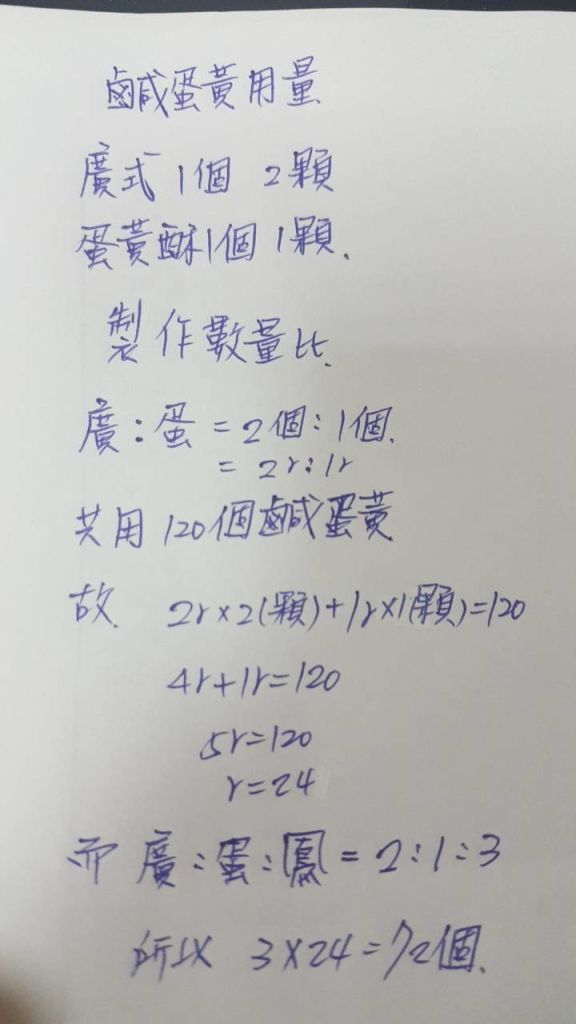 鹹蛋黃用量
廣式1個 2顆
蛋黃酥1個 1顆.
製作數量比.
廣:蛋=2個:1個.
=2r:1r
共用120個鹹蛋黃
故 2r×2(顆)+1r×1(顆)=120
4r+1r=120
5r=120
r=24
而 廣:蛋:鳳=2:1:3
所以 3×24=72個.